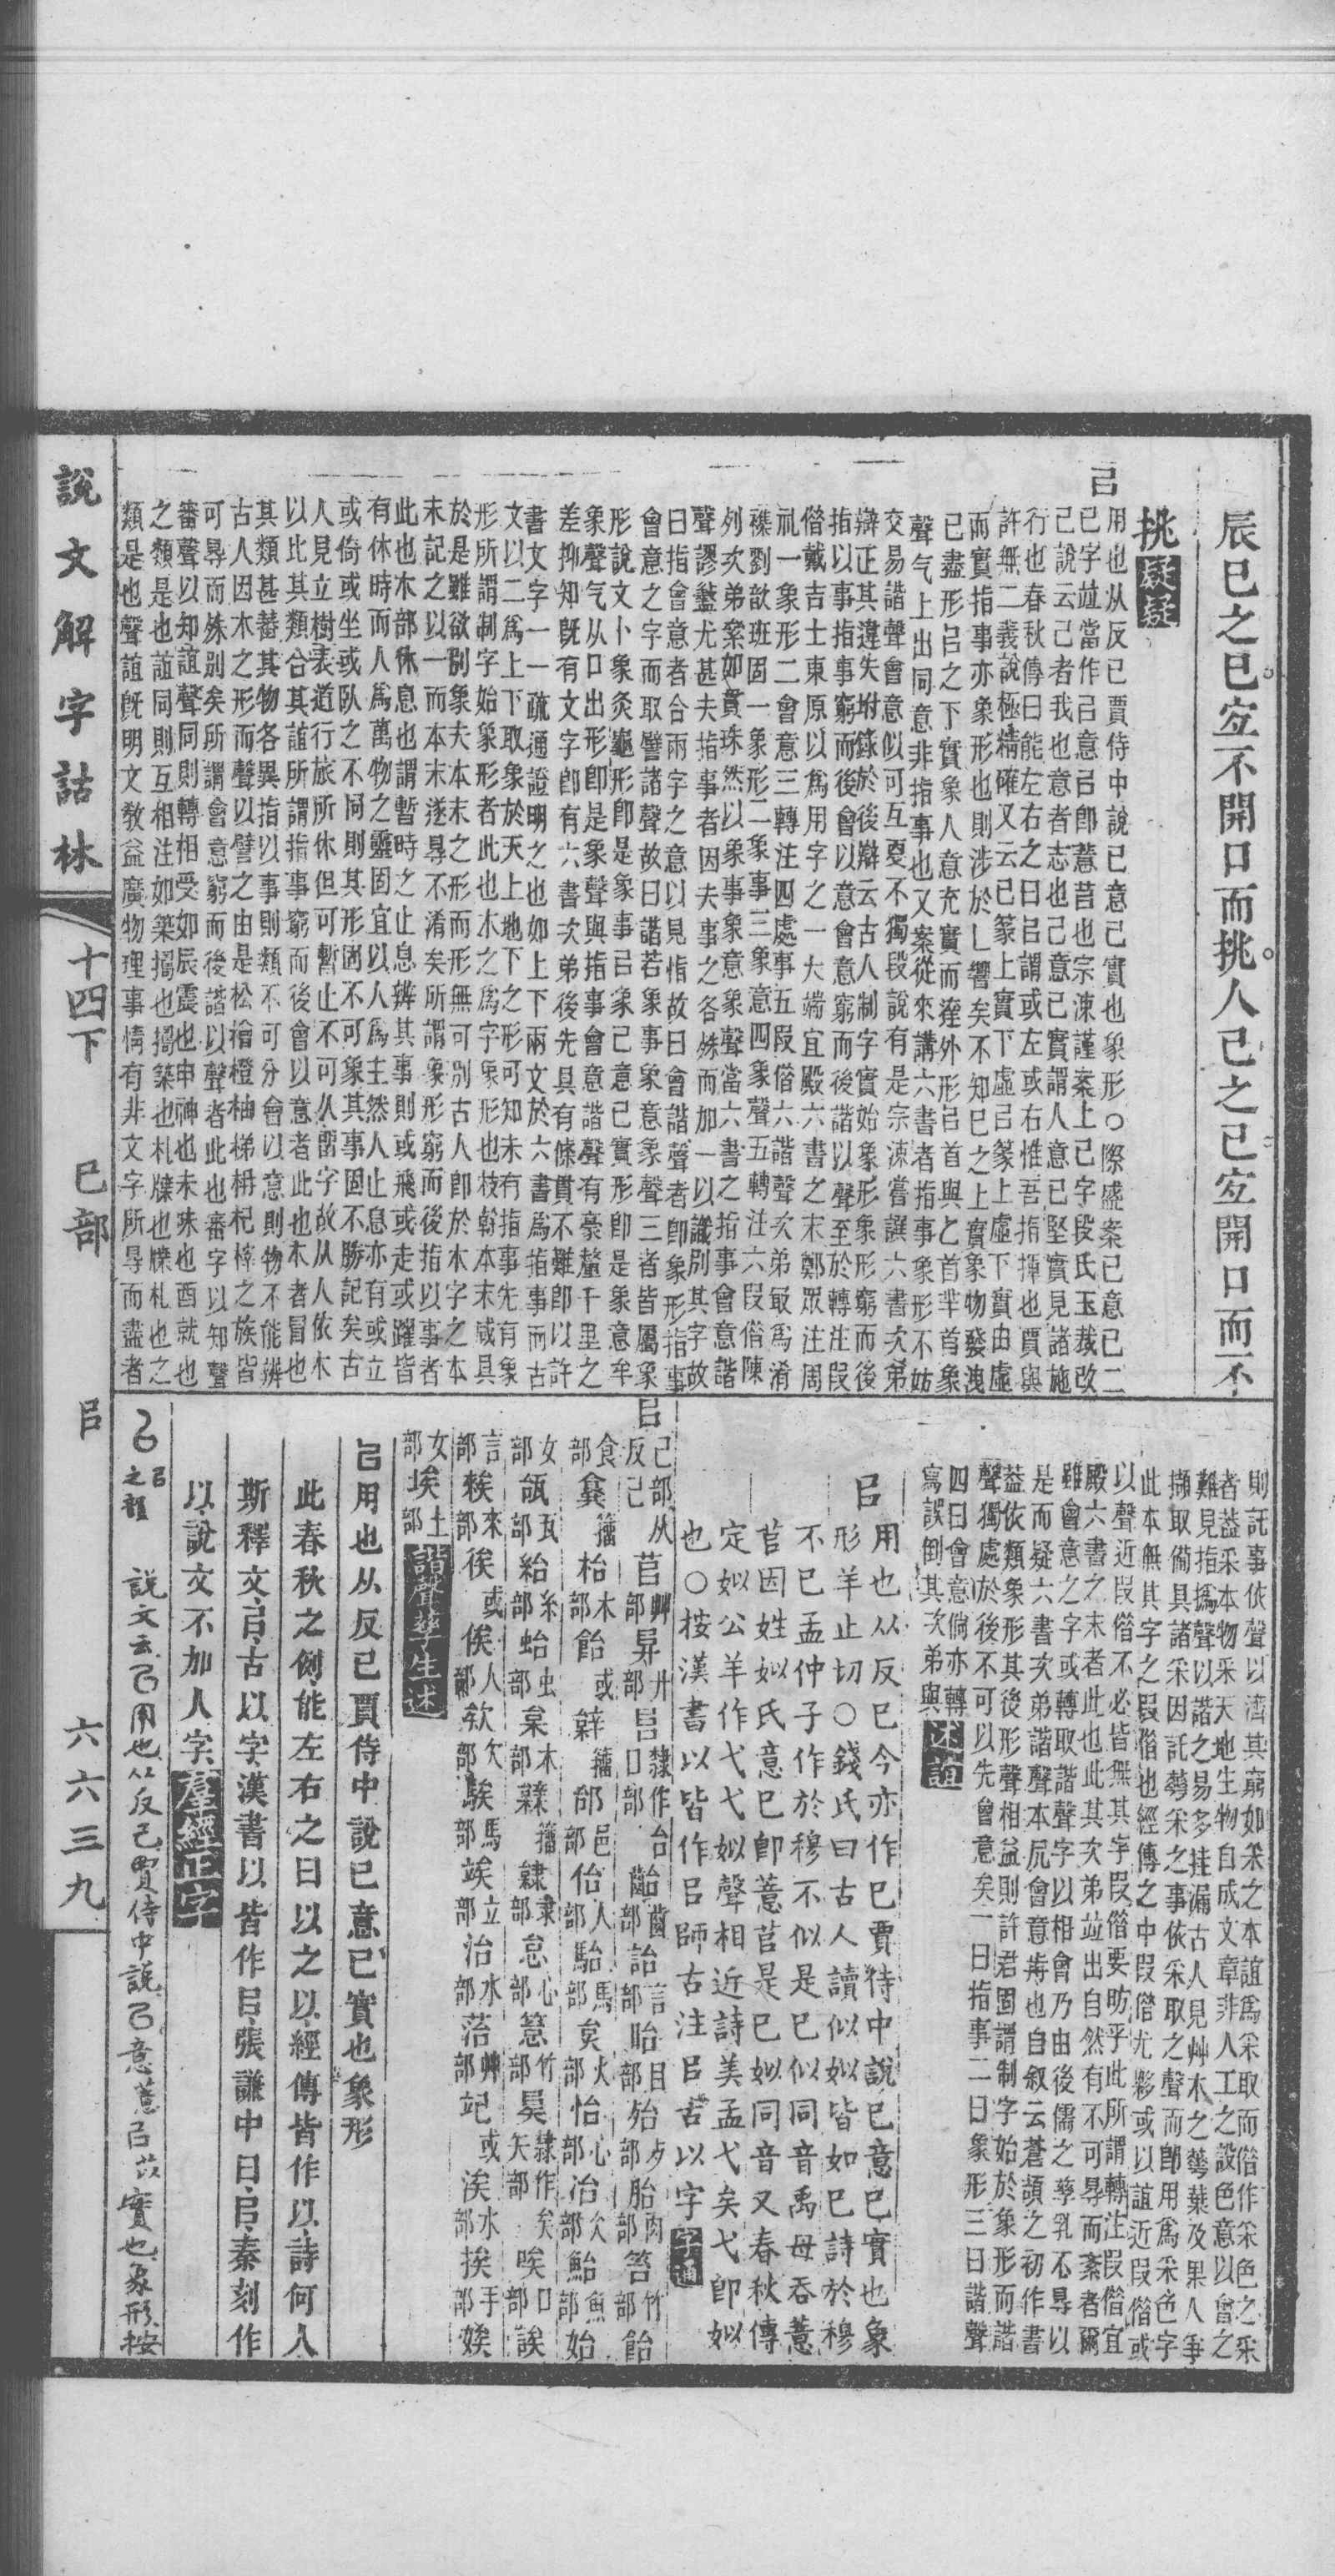 辰巳之巳宐不開口而挑人己之己宐開口而不
挑疑疑
㠯
用也从反巳賈侍中說巳意已實也象形〇際盛案巳意已二
已字竝當作㠯意㠯卽薏苢也宗涑謹案上已字段氏玉裁改
己說云己者我也意者志也己意已實謂人意已堅實見諸施
行也春秋傳曰能左右之曰㠯謂或左或右惟吾指撝也賈與
許無二義說極精確又云已篆上實下虛㠯篆上虛下實由虛
而實指事亦象形也則涉於乚響矣不知巳之上實象物發洩
已盡形㠯之下實象人意充實而瘗外形㠯首與乙首芈首象
聲气上出同意非指事也又案從來講六書者指事象形不妨
交易諧聲會意似可互㪅不獨段說有是宗涑嘗譔六書次弟
辯正其違失坿錄於後辯云古人制字實始象形象形窮而後
指以事指事窮而後會以意會意窮而後諧以聲至於轉注叚
偕戴吉士東原以爲用字之一大端宜殿六書之末鄭眾注周
礼一象形二會意三轉注四處事五叚偕六諧聲次弟㝡爲淆
襍劉歆班固一象形二象事三象意四象聲五轉注六叚偕陳
列次弟案如貫珠然以象事象意象聲當六書之指事會意諧
聲謬盭尤甚夫指事者因夫事之各殊而加一以識別其字故
曰指會意者合兩字之意以見恉故曰會諧聲者卽象形指事
會意之字而取譬諸聲故曰諧若象事象意象聲三者皆屬象
形說文卜象灸龜形卽是象事㠯象己意已實形卽是象意牟
象聲气从口出形卽是象聲與指事會意諧聲有豪釐千里之
差抑知旣有文字卽有六書次弟後先具有條貫不難卽以許
書文字一一疏通證明之也如上下兩文於六書爲指事而古
文以二爲上下取象於天上地下之形可知未有指事先有象
形所謂制字始象形者此也木之爲字象形也枝榦本末咸具
於是雖欲別象夫本末之形而形無可別古人卽於木字之本
末記之以一而本末遂㝵不淆矣所謂象形窮而後指以事者
此也木部休息也謂暫時之止息辨其事則或飛或走或躍皆
有休時而人爲萬物之靈固宜以人爲主然人止息亦有或立
或倚或坐或臥之不同則其形固不可象其事固不勝記矣古
人見立樹表道行旅所休但可暫止不可久畱字故从人依木
以比其類合其誼所謂指事窮而後會以意者此也木者冒也
其類甚蕃其物各異指以事則類不可分會以意則物不能辨
古人因木之形而聲以譬之由是松檜橙柚梯枏杞梓之族皆
可㝵而殊別矣所謂會意窮而後諧以聲者此也審字以知聲
審聲以知誼聲同則轉相受如辰震也申神也未味也酉就也
之類是也誼同則互相注如築擣也擣築也札牒也牒札也之
類是也聲誼旣明文敎益廣物理事情有非文字所㝵而盡者
則託事依聲以濟其窮如采之本誼爲采取而偕作采色之采
者葢采本物采天地生物自成文章非人工之設色意以會之
難見指撝聲以諧之易多挂漏古人見艸木之蕚葉及果人爭
擷取㒳具諸采因託蕚采之事依采取之聲而卽用爲采色字
此本無其字之叚偕也經傳之中叚偕尤夥或以誼近叚偕或
以聲近叚偕不必皆無其字叚偕要昉乎此所謂轉注叚偕宜
殿六書之末者此也此其次弟竝出自然有不可㝵而紊者爾
雖會意之字或轉取諧聲字以相會乃由後儒之孳乳不㝵以
是而疑六書次弟諧聲本凥會意歬也自叙云蒼頡之初作書
葢依類象形其後形聲相益則許君固謂制字始於象形而諧
聲獨處於後不可以先會意矣一曰指事二曰象形三曰諧聲
四曰會意倘亦轉
寫誤倒其次弟與述誼
㠯
用也从反巳今亦作巳賈待中說巳意巳實也象
形羊止切〇錢氏曰古人讀似姒皆如巳詩於穆
不巳孟仲子作於穆不似是巳似同音禹母吞薏
苢因姓姒氏意巳卽薏苢是巳姒同音又春秋傳
定姒公羊作弋弋姒聲相近詩美孟弋矣弋卽姒
也〇按漢書以皆作㠯師古注㠯古以字字通
㠯
己部从反己
苢艸部 㠯口部 隸作台 齝齒部 詒言部 眙目部 殆歺部 胎肉部 笞竹部 飴
食部 籒 枱木部 飴或 辝籒 邰邑部 佁人部 駘馬部 炱火部 怡心部 冶仌部 鮐魚部 始
女部 瓵瓦部 紿糸部 蛤虫部 枲木部 籒 隸隶部 怠心部 箈竹部 矣矢部 隸作矣 唉口部 誒
言部 䅘來部 徯或 俟人部 欸欠部 騃馬部 竢立部 治水部 菭艸部 䇃或 涘水部 挨手部 娭
女部 埃土部 諧聲孳生述
㠯用也从反巳賈侍中說巳意巳實也象形
此春秋之例能左右之曰以之以經傳皆作以詩何人
斯釋文㠯古以字漢書以皆作㠯張謙中曰㠯秦刻作
以說文不加人字羣經正字
㠯 㠯之籒 說文云㠯用也从反己賈侍中說㠯意薏㠯苡實也象形按
說文解字詁林
十四下 巳部 㠯
六六三九